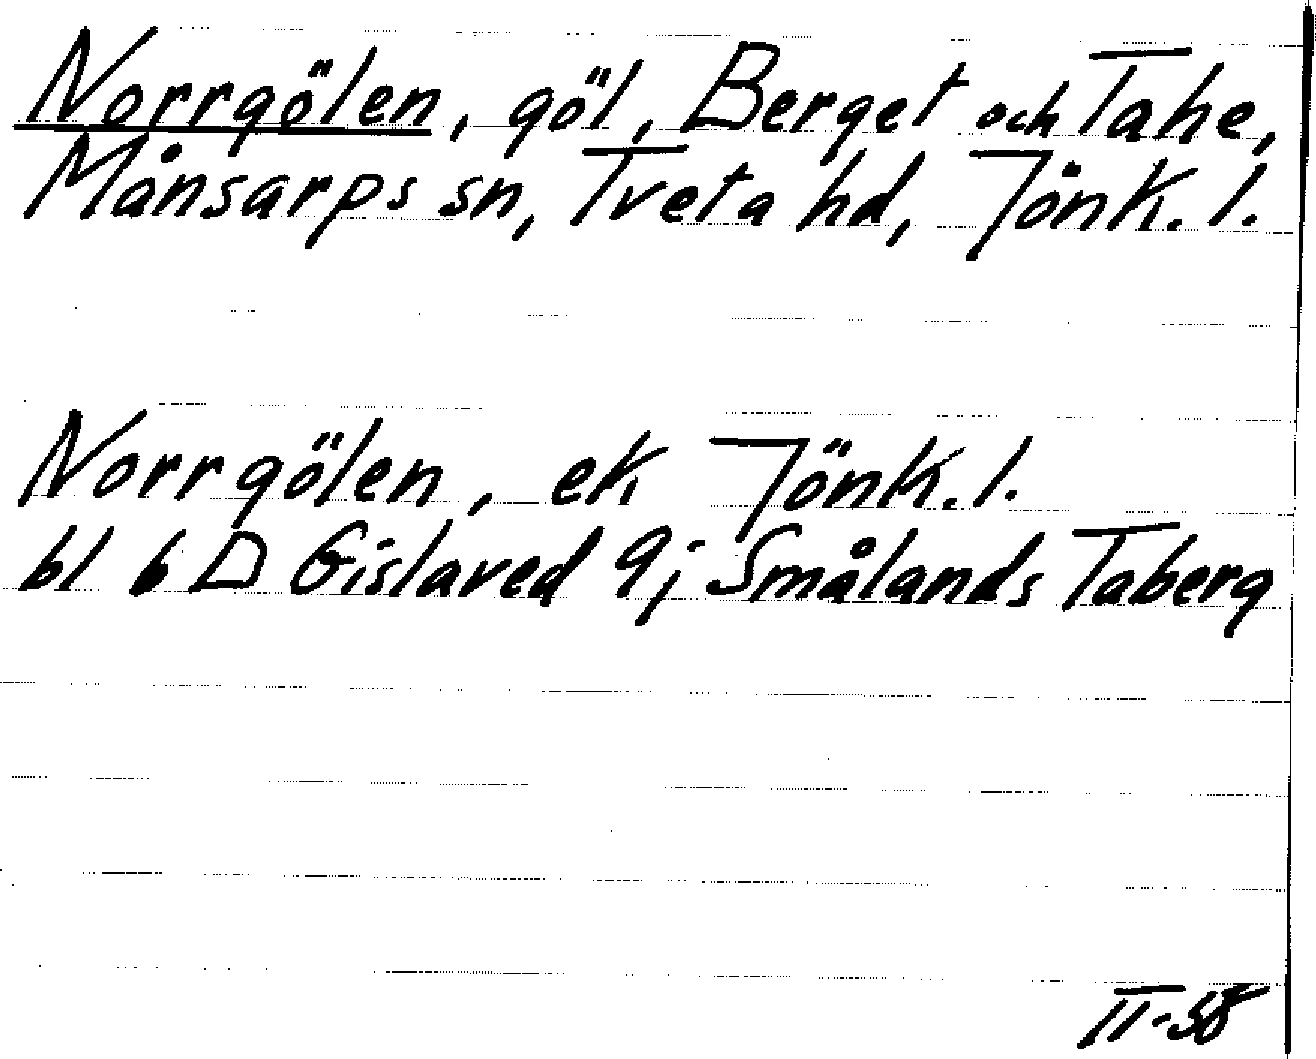 Norrgölen, göl, Berget och Tahe,
Månsarps sn, Tveta hd, Jönk. l.
Norrgölen, ek Jönk. l.
bl 6 D Gislaved 9j Smålands Taberg
II-58